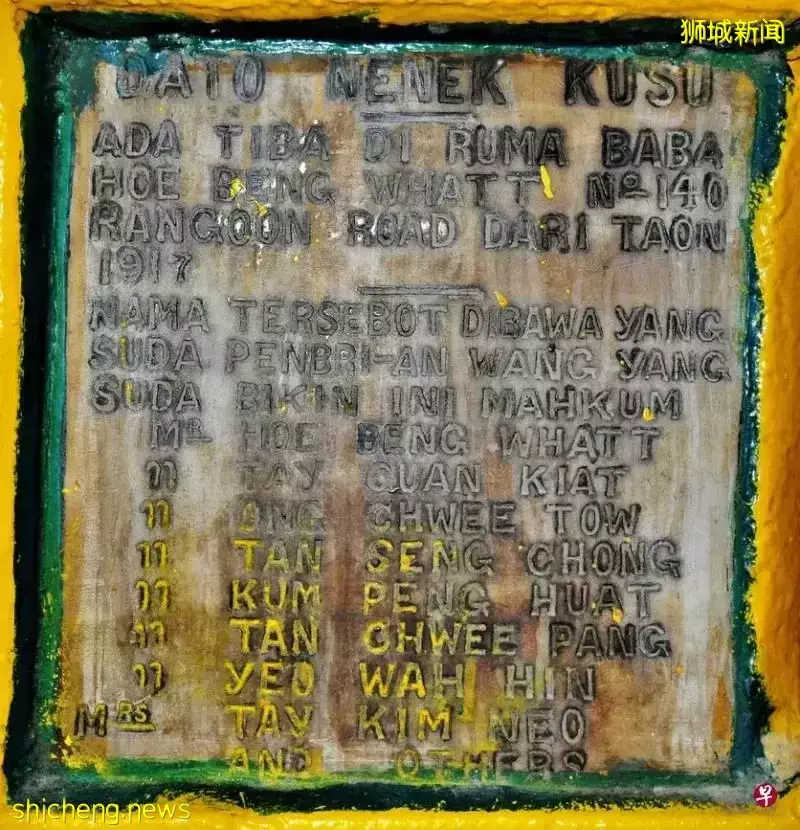 狮城新闻
DATO NENEK KUSU
ADA TIBA DI RUMA BABA
HOE BENG WHATT Nº 140
RANGOON ROAD DARI TAON
1917
NAMA TERSEBOT DIBAWA YANG
SUDA PENBRI-AN WANG YANG
SUDA BIKIN INI MAHKUM
MR HOE BENG WHATT
" TAY QUAN KIAT
" ONG CHWEE TOW
" TAN SENG CHONG
" KUM PENG HUAT
" TAN CHWEE PANG
" YEO WAH HIN
MRS TAY KIM NEO
AND OTHERS
shicheng.news
早